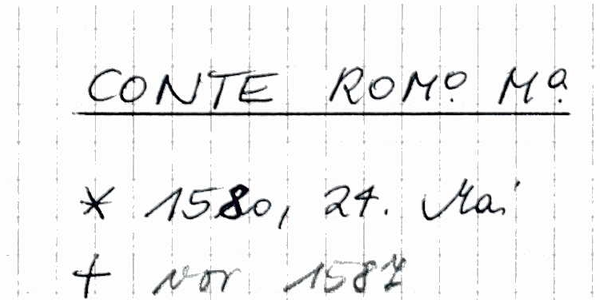 CONTE ROMº Mª
* 1580, 24. Mai
+ vor 1587